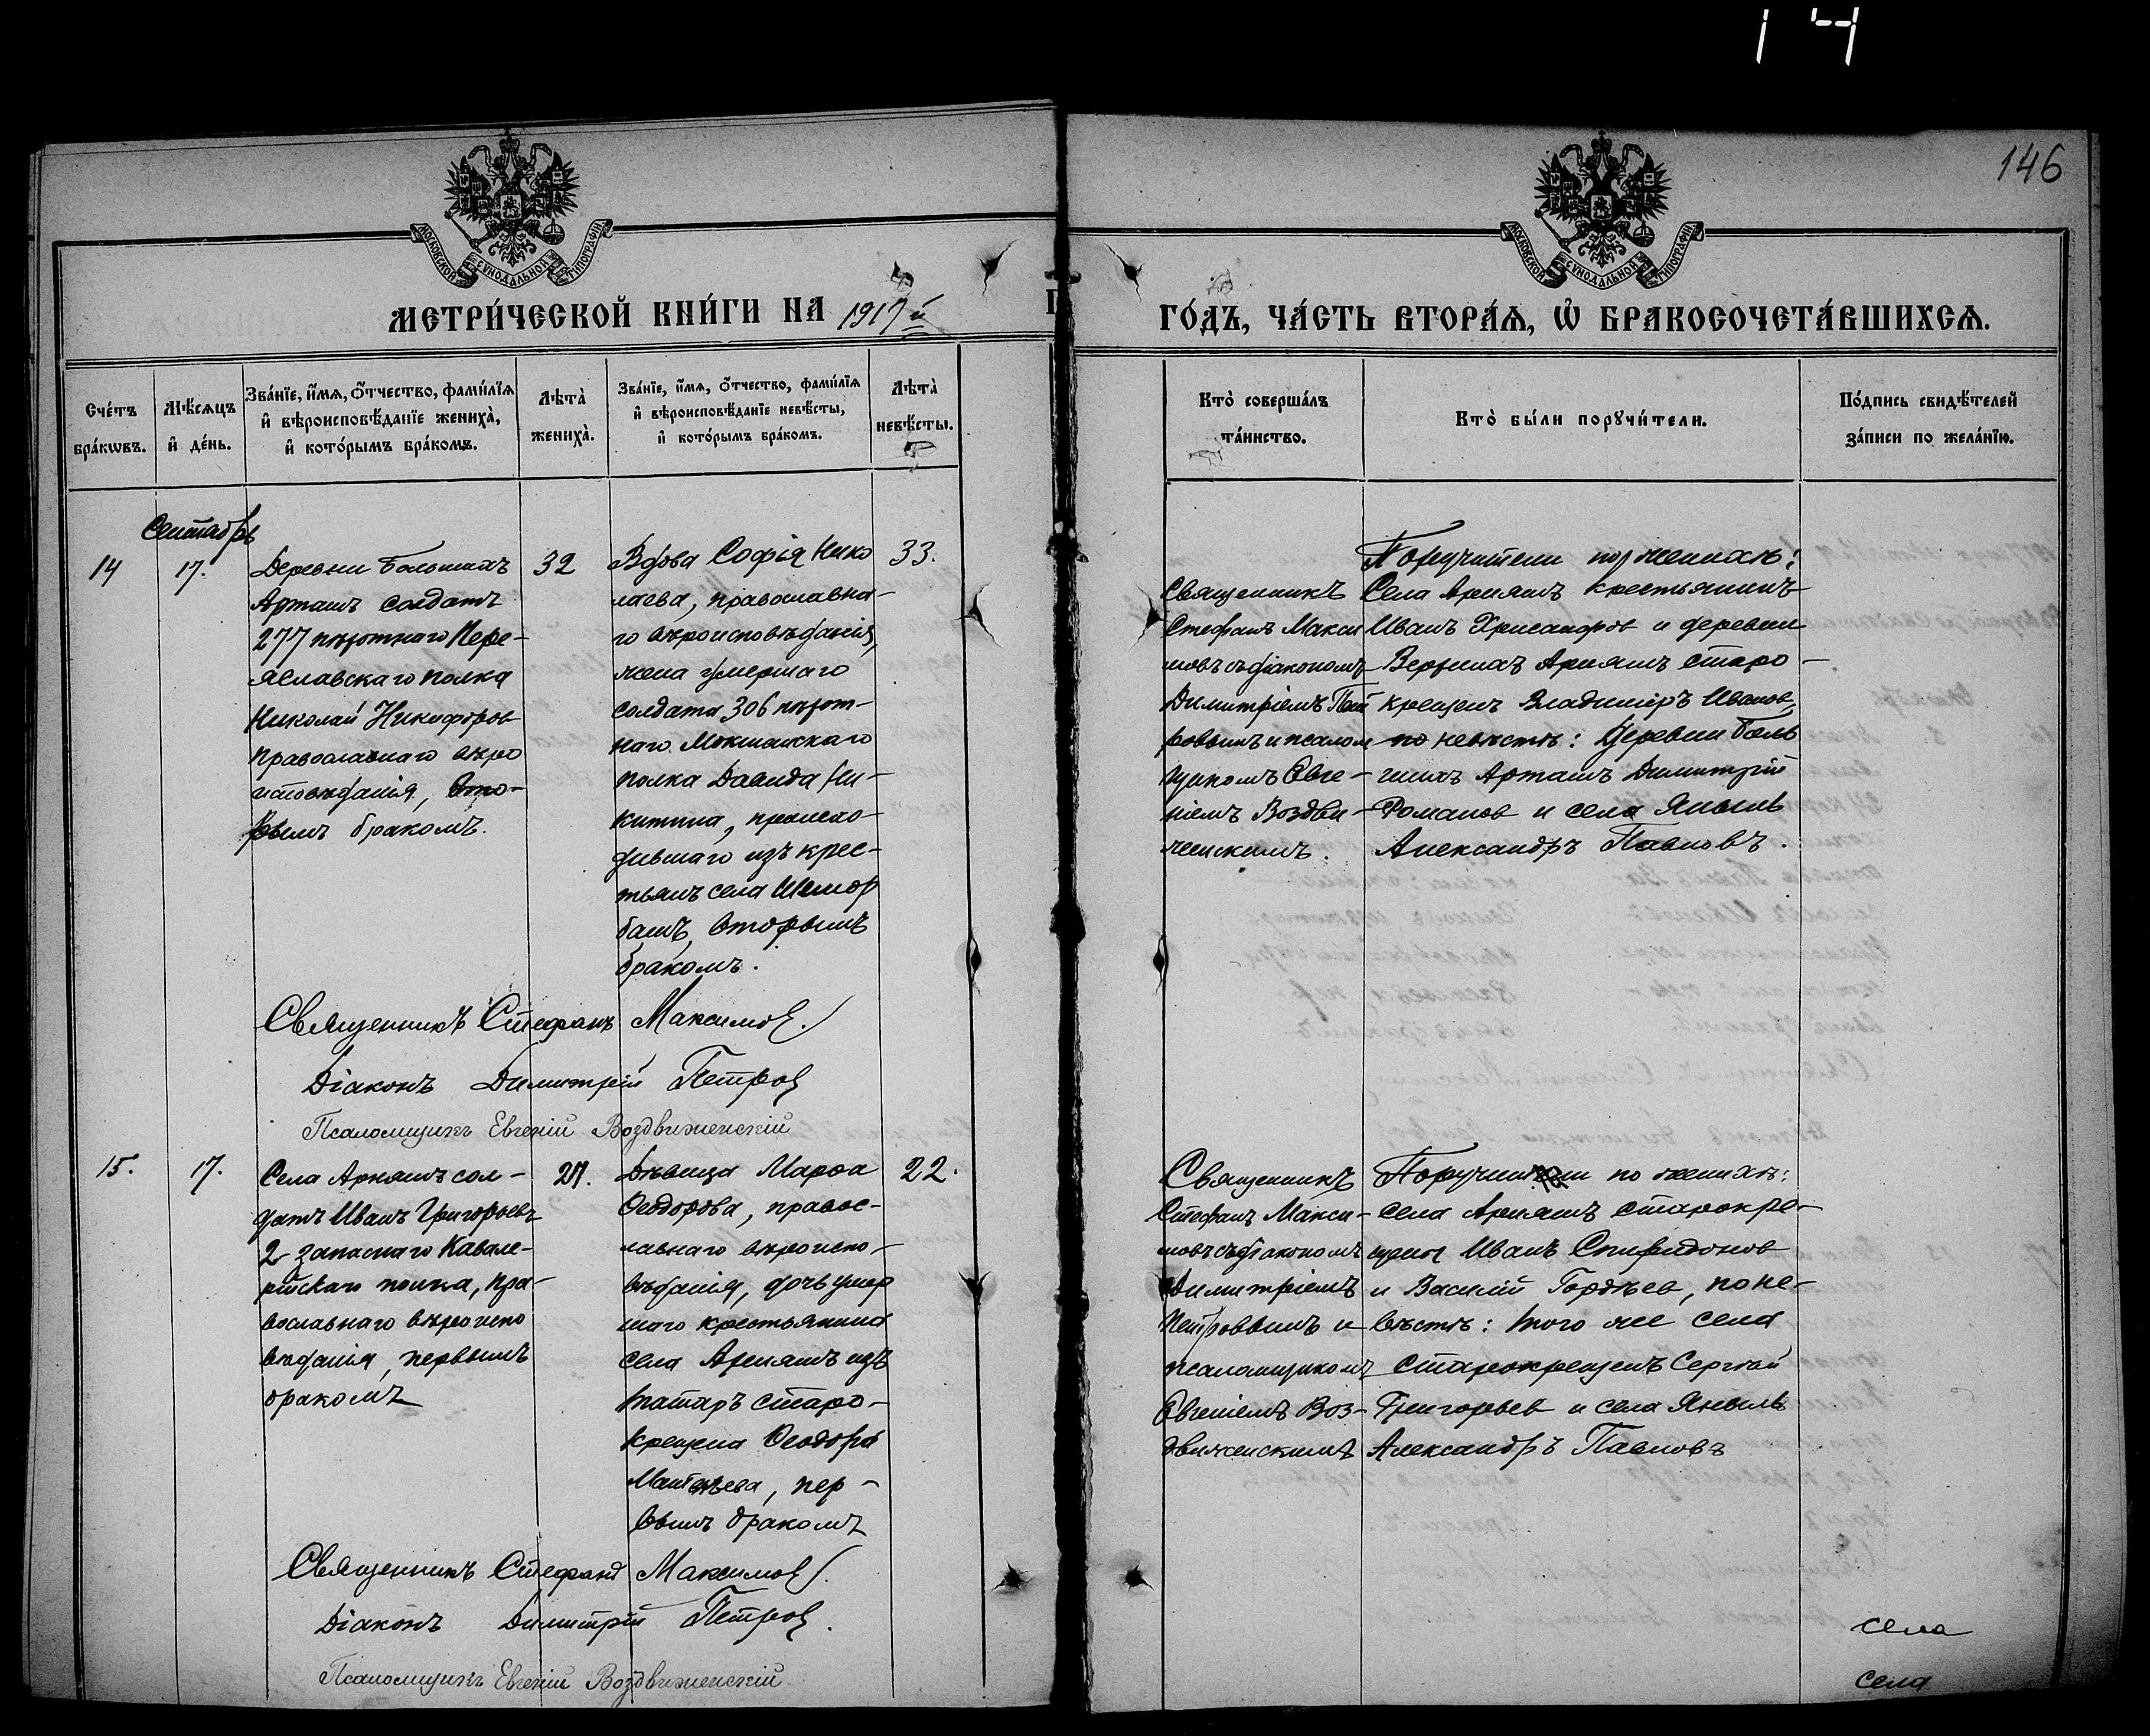 146
МОСКОВСКОЙ СѴНОДАЛЬНОЙ ТИПОГРАФІИ
МОСКОВСКОЙ СѴНОДАЛЬНОЙ ТИПОГРАФІИ
МЕТРИ́ЧЕСКОЙ КНИ́ГИ НА 1917 й
ГО́ДЪ, ЧА́СТЬ ВТОРА́Ѧ, Ѡ҆ БРАКОСОЧЕТА́ВШИХСѦ.
Сче́тъ бра́кѡвъ.
Мѣ́сѧцъ и҆ де́нь.
Зва́нїе, и҆́мѧ, ѻ҆́тчество, фами́лїѧ
и҆ вѣроисповѣ́данїе жениха̀,
и҆ кото́рымъ бра́комъ.
Лѣта̀ жениха̀.
Зва́нїе, и҆́мѧ, ѻ҆́тчество, фами́лїѧ
и҆ вѣроисповѣ́данїе невѣ́сты,
и҆ кото́рымъ бра́комъ.
Лѣта̀ невѣ́сты.
Кто̀ соверша́лъ
та́инство.
Кто̀ бы́ли порꙋчи́тели.
По́дпись свидѣ́телей
за́писи по жела́нїю.
Сентябрь
14
17.
Деревни Большихъ
Арташъ солдатъ
277 пѣхотнаго Пере-
яславскаго полка
Николай Никифоров
православнаго вѣро
исповѣданія, вто-
рымъ бракомъ.
32
Вдова Софія Нико
лаева, православна-
го вѣроисповѣданія,
жена умершаго
солдата 306 пѣхот-
наго Мокшанскаго
полка Давида Ни-
китина, происхо-
дившаго изъ крес-
тьянъ села Шемор
башъ, вторымъ
бракомъ.
33.
Священникъ
Стефанъ Макси
мовъ съ діакономъ
Димитріемъ Пет
ровымъ и псалом
щикомъ Евге-
ніемъ Воздви-
женскимъ.
Поручители по женихѣ:
Села Арняшъ крестьянинъ
Иванъ Хрисанфов и деревни
Верхнихъ Арняшъ старо-
крещенъ Владимиръ Иванов,
по невѣстѣ: Деревни Боль
шихъ Арташъ Димитрій
Романов и села Яныль
Александръ Павловъ.
Священникъ Стефанъ Максимов.
Діаконъ Димитрій Петров
Псаломщикъ Евгеній Воздвиженскій
15.
17.
Села Арняшъ сол-
датъ Иванъ Григорьевъ
2 запаснаго Кавале-
рійскаго полка, пра-
вославнаго вѣроиспо
вѣданія, первымъ
бракомъ
Дѣвица Марѳа
Ѳеодорова, правос-
лавнаго вѣроиспо-
вѣданія, дочь умер
шаго крестьянина
села Арняшъ изъ
татаръ старо-
крещена Ѳеодора
Матвѣева, пер-
вымъ бракомъ
22.
Священникъ
Стефанъ Макси-
мовъ съ діакономъ
Димитріемъ
Петровымъ и
псаломщикомъ
Евгеніемъ Воз-
движенскимъ
Поручители по женихѣ:
села Арняшъ старокре-
щены Иванъ Спиридонов
и Василій Гордѣев, по не-
вѣстѣ: того же села
старокрещенъ Сергѣй
Григорьев и села Яныль
Александръ Павловъ
Священникъ Стефанъ Максимов.
Діаконъ Димитрій Петров.
Псаломщикъ Евгеній Воздвиженскій
села
села